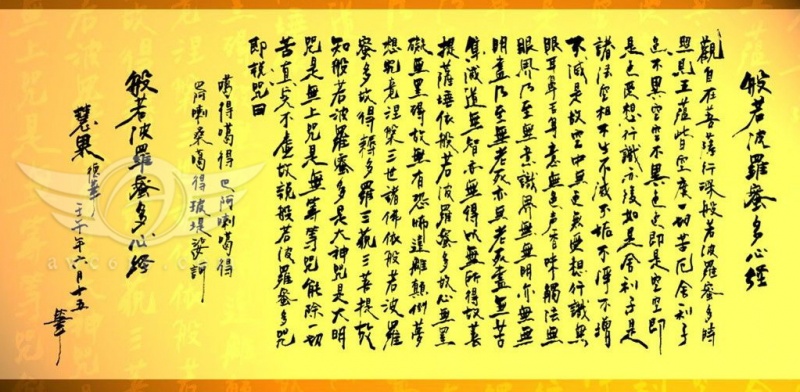 般若波羅蜜多心經
觀自在菩薩行深般若波羅蜜多時
照見五蘊皆空度一切苦厄舍利子
色不異空空不異色色即是空空即
是色受想行識亦復如是舍利子是
諸法空相不生不滅不垢不淨不增
不減是故空中無色無受想行識無
眼耳鼻舌身意無色聲香味觸法無
眼界乃至無意識界無無明亦無無
明盡乃至無老死亦無老死盡無苦
集滅道無智亦無得以無所得故菩
提薩埵依般若波羅蜜多故心無罣
礙無罣礙故無有恐怖遠離顛倒夢
想究竟涅槃三世諸佛依般若波羅
蜜多故得耨多羅三藐三菩提故
知般若波羅蜜多是大神咒是大明
咒是無上咒是無等等咒能除一切
苦真實不虛故說般若波羅蜜多咒
即說咒曰
噶得噶得 巴阿喇噶得
巴阿喇桑噶得 玻堤娑訶
般若波羅蜜多心経
慧果
壬午年六月十五 華